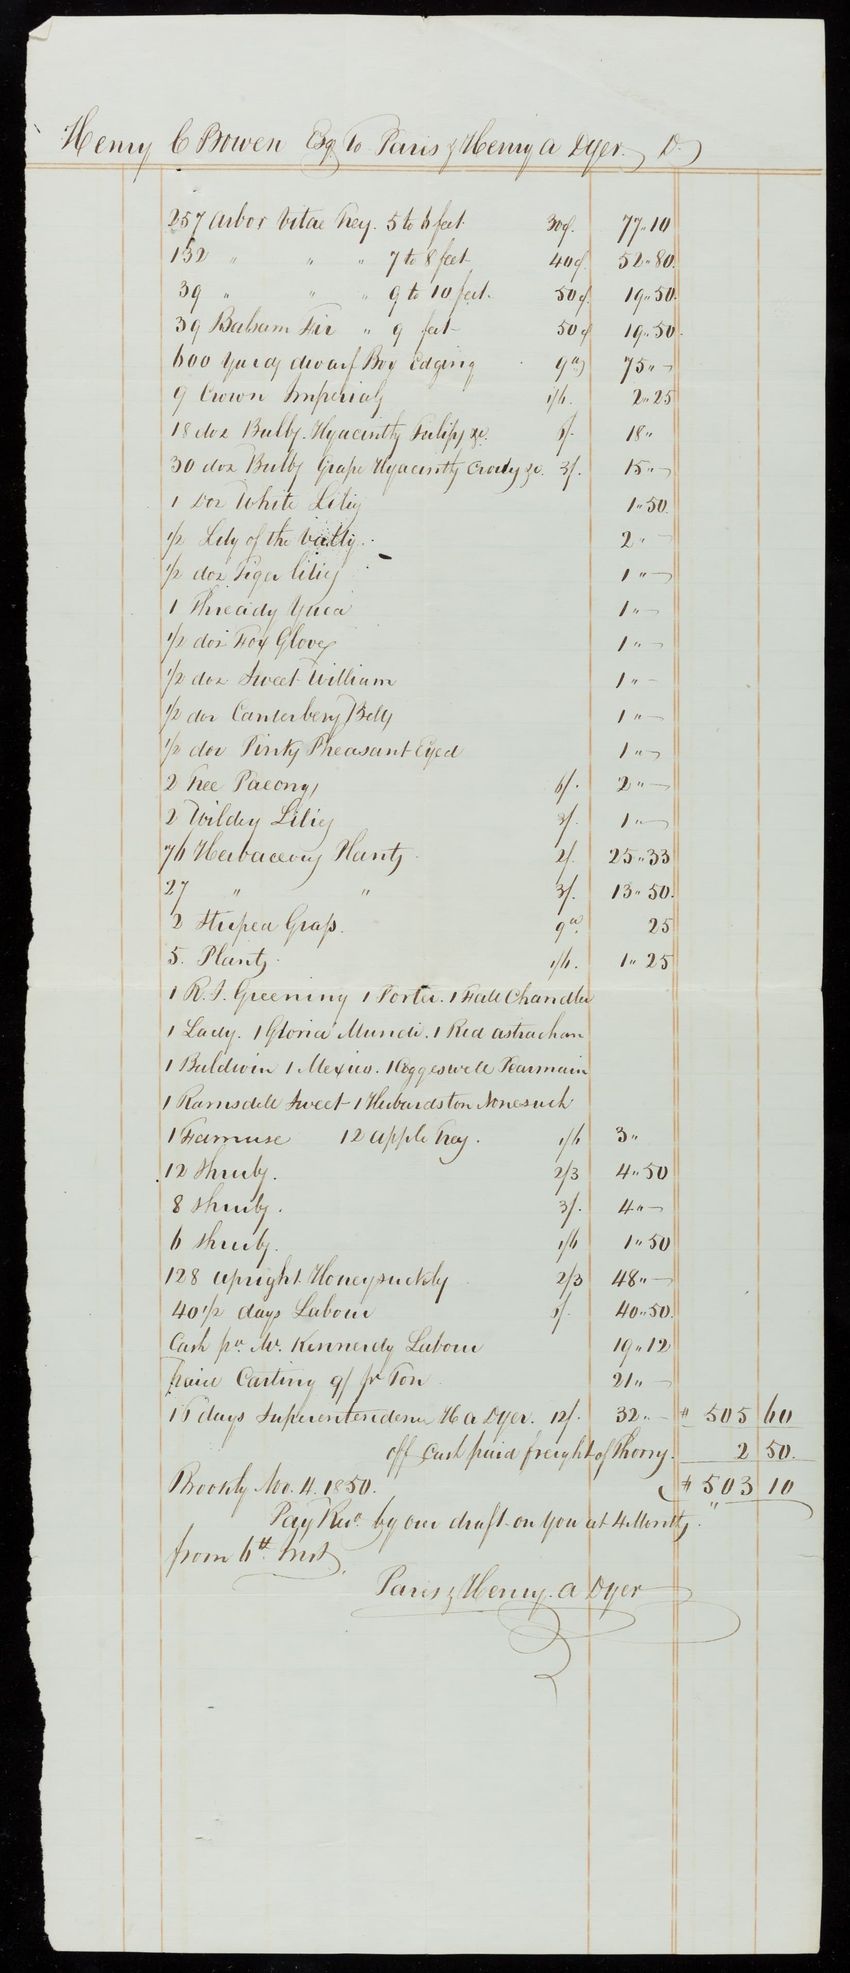 Henry C Bowen Esq To Paris & Henry A Dyer Dr
257 Arbor Vitae Trees 5 to 6 feet 30¢ 77"10
132 " " " 7 to 8 feet 40¢ 52"80
39 " " " 9 to 10 feet 50¢ 19"50
39 Balsam Fir " 9 feet 50¢ 19"50
600 yards dwarf Box Edging 9d 75"—
9 Crown Imperials 1/6 2"25
18 doz Bulbs. Hyacinths Tulips &c. 18"
30 doz Bulbs Grape Hyacinths Crocus &c. 3/. 15"—
1 Doz White Lilies 1"50
1/2 Lily of the Vally 2"—
1/2 doz Tiger Lilies 1"—
1 Thready Yuca 1"—
1/2 doz Fox Gloves 1"—
1/2 doz Sweet William 1"—
1/2 doz Canterbery Bells 1"—
1/2 doz Pinks Pheasant Eyed 1"—
2 Tree Paeonys 6/. 2"—
2 Lilies 3/. 1"—
76 Herbaceous Plants 2/. 25"33
27 " " 3/. 13"50
2 Striped Grass. 9d. 25
5. Plants 1/6. 1"25
1 R. I. Greening 1 Porter. 1 Fall Chandler
1 Lady. 1 Gloria Mundi. 1 Red astrachan
1 Baldwin 1 Mexico. 1 Coggeswell Pearmain
1 Ramsdell Sweet 1 Hubardston Nonesuch
1 Famuse 12 apple trees. 1/6 3"
12 Shrubs. 2/3 4"50
8 Shrubs. 3/. 4"—
6 Shrubs. 1/6 1"50
128 upright Honeysuckls 2/3 48"—
40 1/2 days Labour 40"50
Cash pd. Mr. Kennerdy Labour 19"12
paid Carting 9/ pr Ton 21"—
16 days Superentendence H A Dyer. 12/. 32"— $ 505 60
off Cash paid freight of Thorns. 2 50.
Brookly Nov. 4. 1850. $ 503 10
Pay Recd. by our draft on you at 4 Months
from 6th Inst.
Paris & Henry. A Dyer